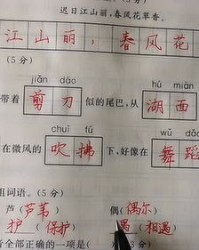 迟日江山丽,春风花草香。
江山丽,春风花
(5分)
jiǎn dāo hú miàn
带着 剪刀 似的尾巴,从 湖面
chuī fú wǔ dǎo
在微风的 吹拂 下,好像在 舞蹈
组词语。(5分)
芦(芦苇) 偶(偶尔)
护(保护) 遇(相遇)
音全部正确的一项是(3分)